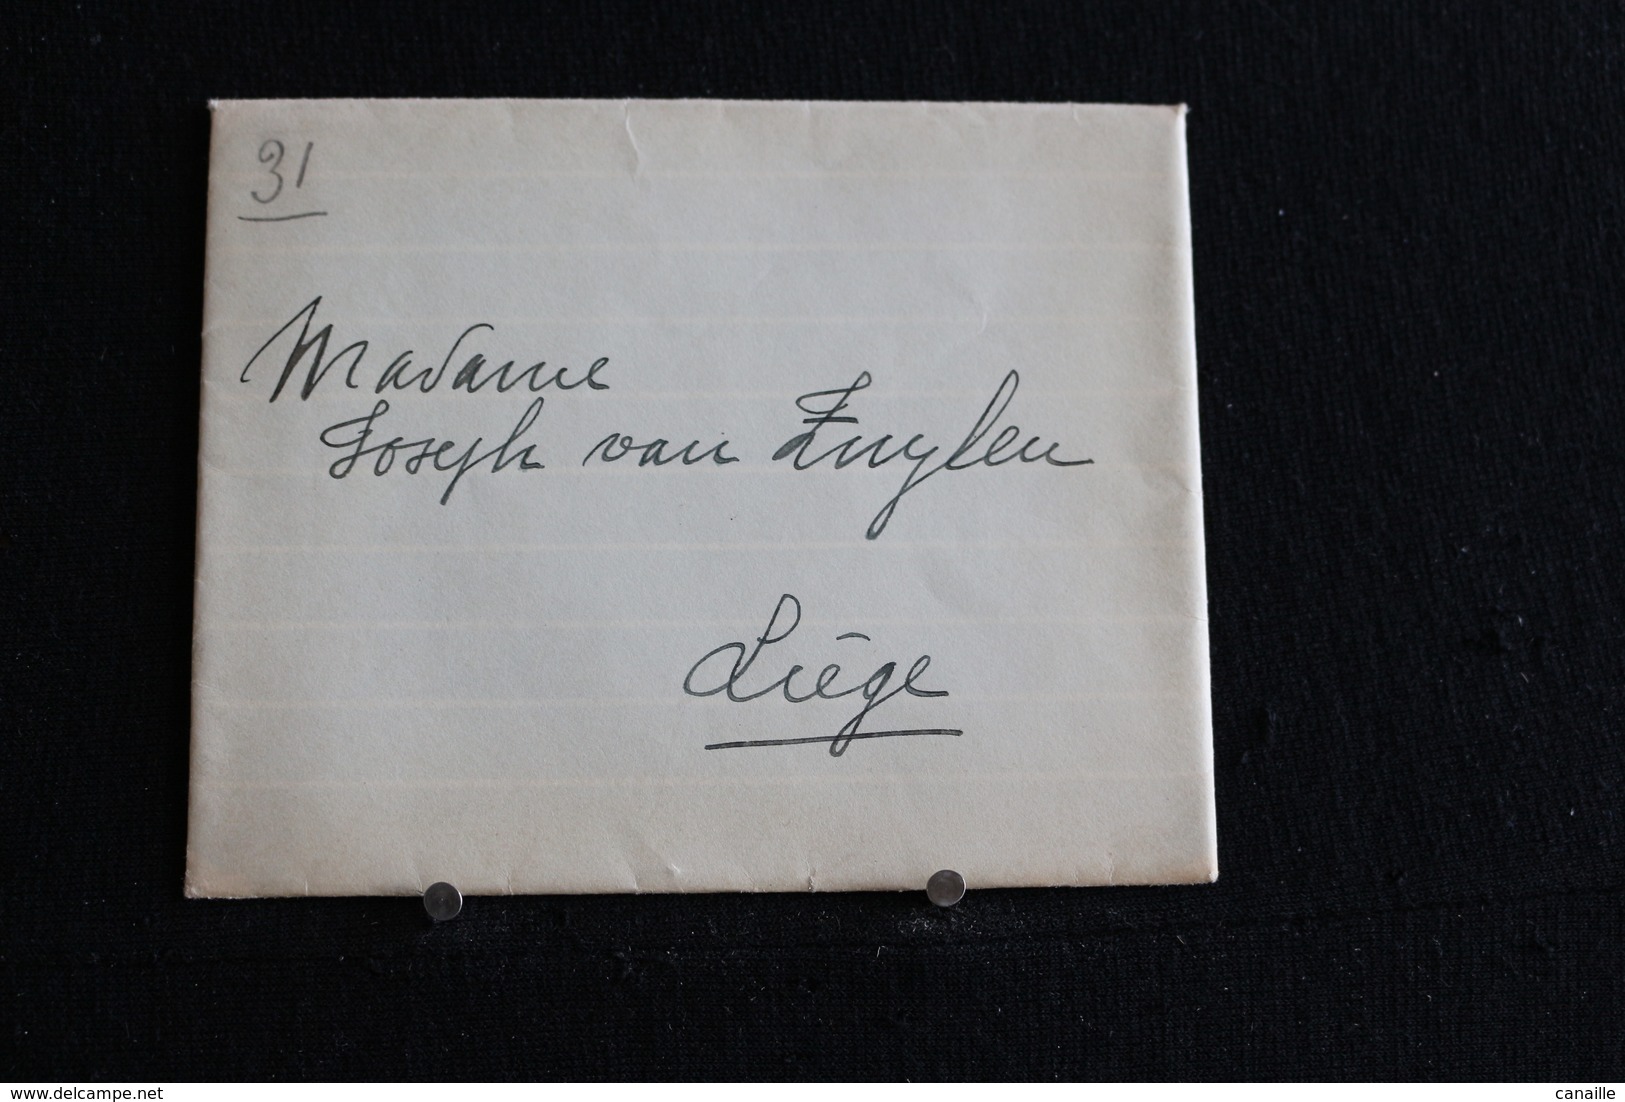 31
Madame
Joseph van Zuylen
Liège
www.delcampe.net
canaille